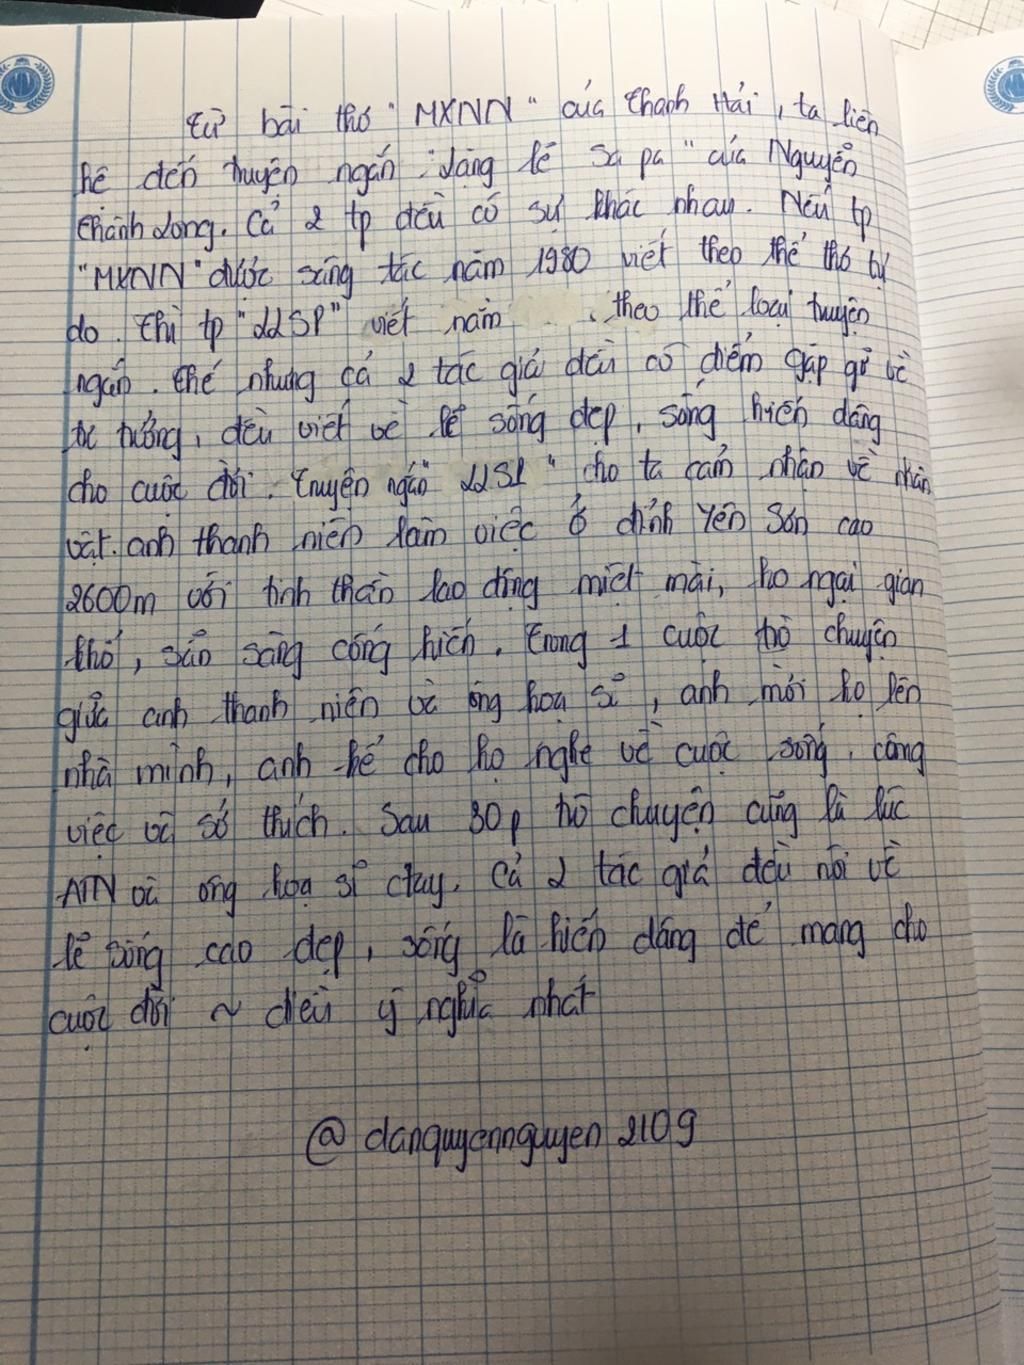 Từ bài thơ "MXNN" của Thanh Hải, ta liên
hệ đến truyện ngắn "Lặng lẽ Sa pa" của Nguyễn
Thành Long. Cả 2 tp đều có sự khác nhau. Nếu tp
"MXNN" được sáng tác năm 1980 viết theo thể thơ tự
do. Thì tp "LLSP" viết năm . theo thể loại truyện
ngắn. Thế nhưng cả 2 tác giả đều có điểm gặp gỡ về
tư tưởng, đều viết về lẽ sống đẹp, sống hiến dâng
cho cuộc đời. Truyện ngắn "LLSP" cho ta cảm nhận về nhân
vật. anh thanh niên làm việc ở đỉnh Yên Sơn cao
2600m với tinh thần lao động miệt mài, ko ngại gian
khổ, sẵn sàng cống hiến. Trong 1 cuộc trò chuyện
giữa anh thanh niên và ông hoạ sĩ, anh mời họ lên
nhà mình, anh kể cho họ nghe về cuộc sống, công
việc và sở thích. Sau 30p trò chuyện cũng là lúc
ATN và ông hoạ sĩ ctay. Cả 2 tác giả đều nói về
lẽ sống cao đẹp, sống là hiến dâng để mang cho
cuộc đời ~ điều ý nghĩa nhất
@danquyennguyen2109